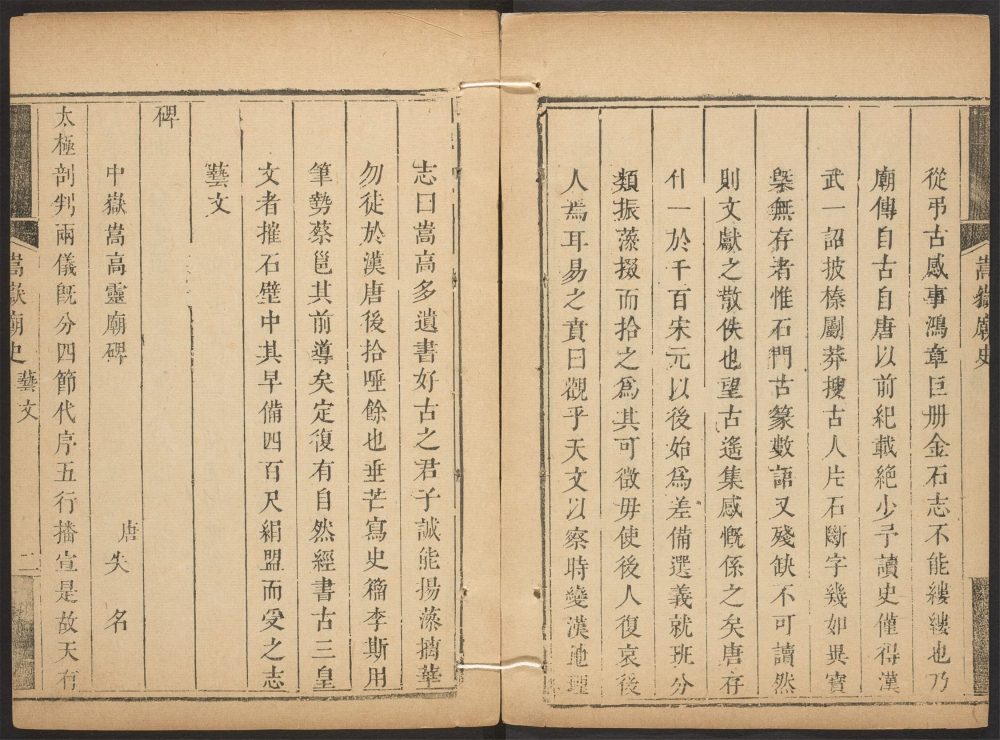 嵩嶽廟史
從弔古感事鴻章巨册金石志不能縷縷也乃
廟傳自古自唐以前紀載絶少予讀史僅得漢
武一詔披榛劚莽搜古人片石斷字幾如異寶
槩無存者惟石門古篆數語又殘缺不可讀然
則文獻之散佚也望古遙集感慨係之矣唐存
什一於千百宋元以後始爲差備選義就班分
類振藻掇而拾之爲其可徵毋使後人復哀後
人焉耳易之賁曰觀乎天文以察時變漢地理
志曰嵩高多遺書好古之君子誠能揚藻摛華
勿徒於漢唐後拾唾餘也垂芒寫史籀李斯用
筆勢蔡邕其前導矣定復有自然經書古三皇
文者摧石壁中其早備四百尺絹盟而受之志
藝文
碑
中嶽嵩高靈廟碑
唐失名
太極剖判兩儀旣分四節代序五行播宣是故天有
嵩嶽廟史
藝文
二